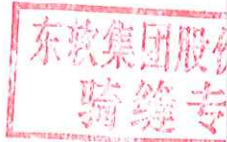 东软集团股份
骑缝专